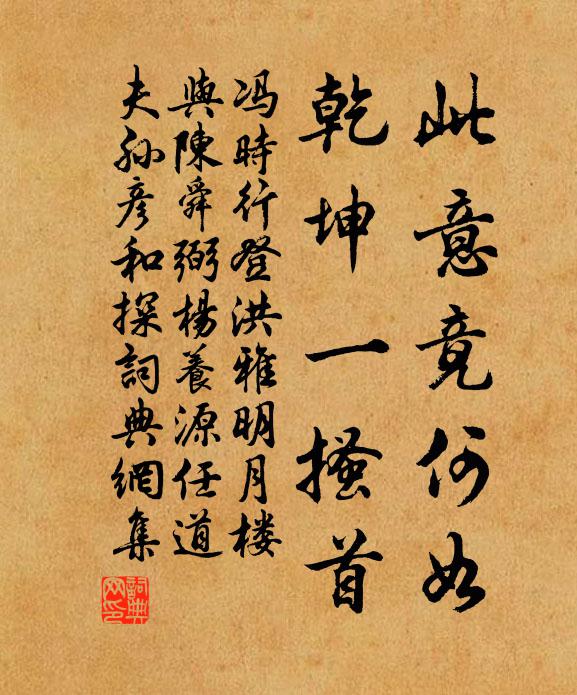 此意竟何如
乾坤一搔首
冯時行登洪雅明月楼
與陳舜弼楊養源任道
夫孙彦和探詞典網集
詞典網印